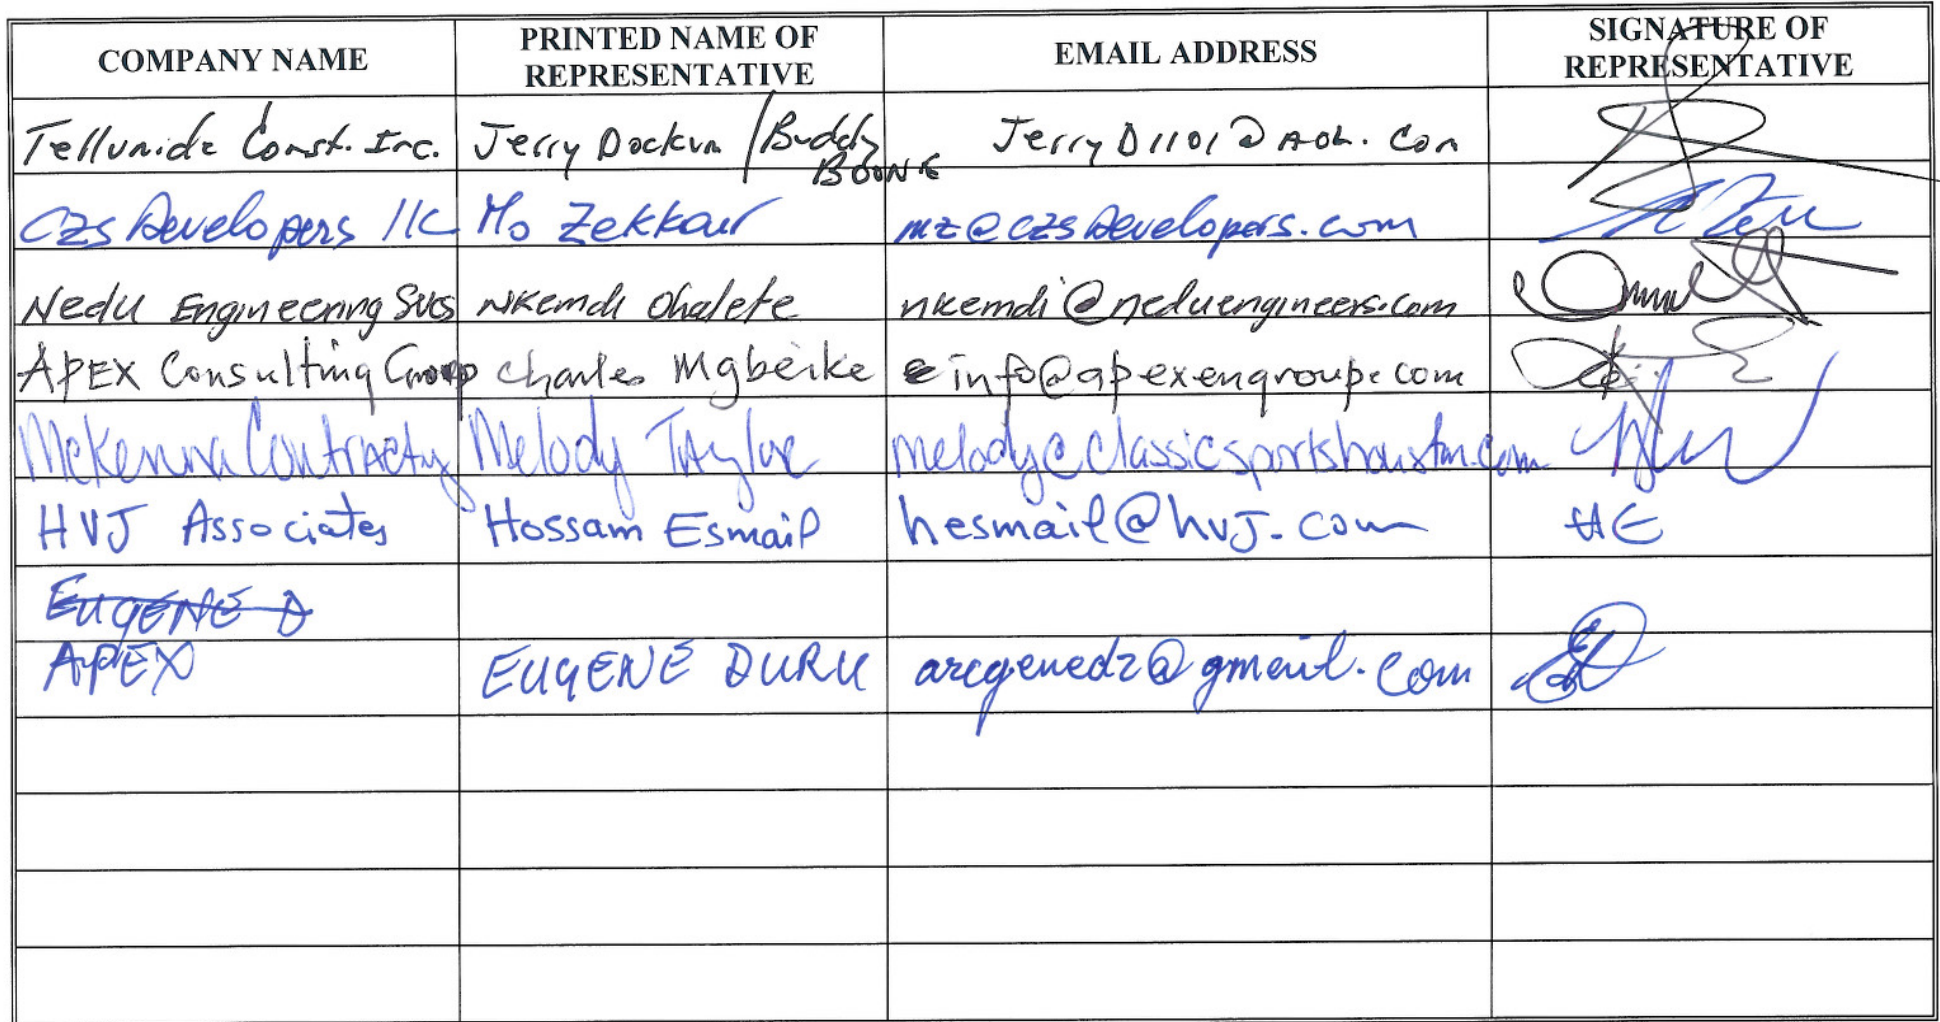 COMPANY NAME PRINTED NAME OF REPRESENTATIVE EMAIL ADDRESS SIGNATURE OF REPRESENTATIVE
Telluride Const. Inc. Jerry Dockum / Buddy BOONE JerryD1101@AOL.Com
CZS Developers llc Mo Zekkair mz@czsDevelopers.com
Nedu Engineering Svcs Nkemdi Ohalete nkemdi@neduengineers.com
APEX Consulting Group Charles Mgbeike info@apexengroup.com
McKenna Contracting Melody Taylor melody@classicsportshouston.com
HVJ Associates Hossam Esmail hesmail@hvj.com HE
EUGENE D
APEX EUGENE DURU arcgenedz@gmail.com